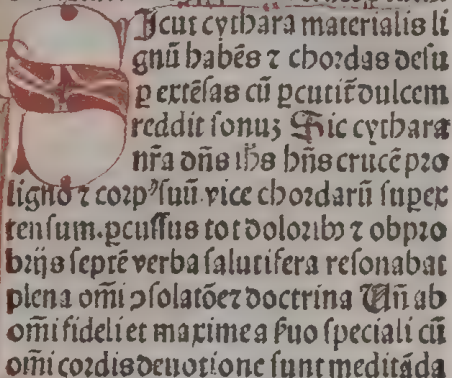 Sicut cythara materialis li
gnū habēs ⁊ chordas desu
ꝑ extēsas cū ꝑcutit̄ dulcem
reddit sonuꝫ Sic cythara
nr̄a dn̄s ih̄s hn̄s crucē pro
ligno ⁊ corpꝰ suū vice chordarū super
tensum. ꝑcussus tot dolorib⁊ ⁊ obpro
brijs septē verba salutifera resonabat
plena omi ↄsolatōe⁊ doctrina Vn̄ ab
omi fideli et maxime a suo speciali cū
omi cordis deuotione sunt meditāda